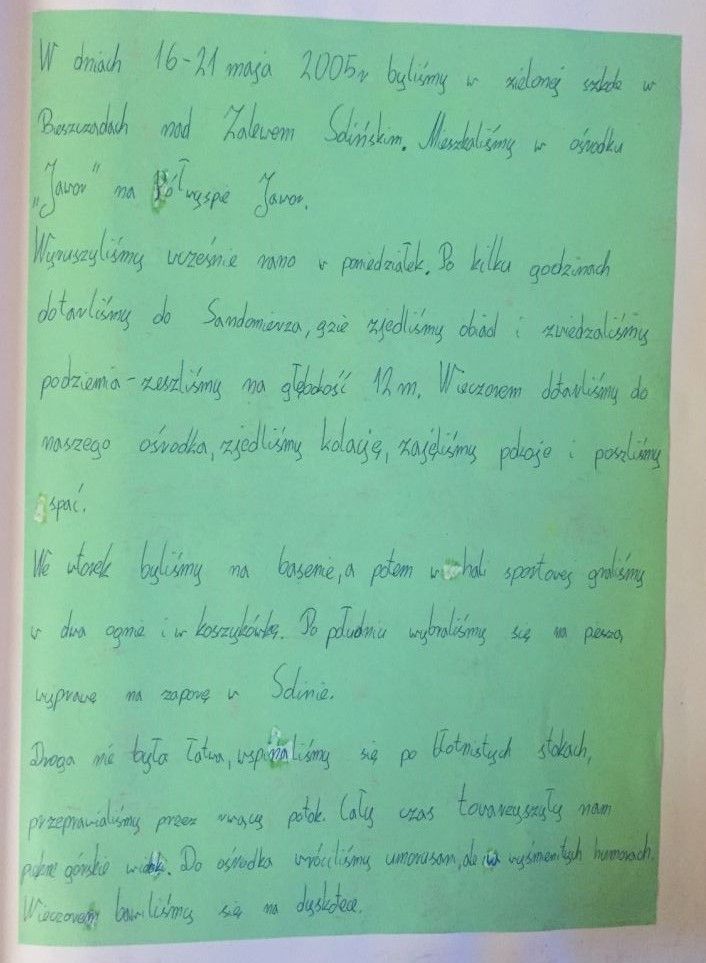 W dniach 16-21 maja 2005r byliśmy w zielonej szkole w
Bieszczadach nad Zalewem Solińskim. Mieszkaliśmy w ośrodku
"Jawor" na Półwyspie Jawor.
Wyruszyliśmy wcześnie rano w poniedziałek. Po kilku godzinach
dotarliśmy do Sandomierza, gzie zjedliśmy obiad i zwiedzaliśmy
podziemia - zeszliśmy na głębokość 12 m. Wieczorem dotarliśmy do
naszego ośrodka, zjedliśmy kolację, zajęliśmy pokoje i poszliśmy
spać.
We wtorek byliśmy na basenie, a potem w hali sportowej graliśmy
w dwa ognie i w koszykówkę. Po południu wybraliśmy się na pieszą
wyprawę na zaporę w Solinie.
Droga nie była łatwa, wspinaliśmy się po błotnistych stokach,
przeprawialiśmy przez rwący potok. Cały czas towarzyszyły nam
piękne górskie widoki. Do ośrodka wróciliśmy umorusani, ale w wyśmienitych humorach.
Wieczorem bawiliśmy się na dyskotece.